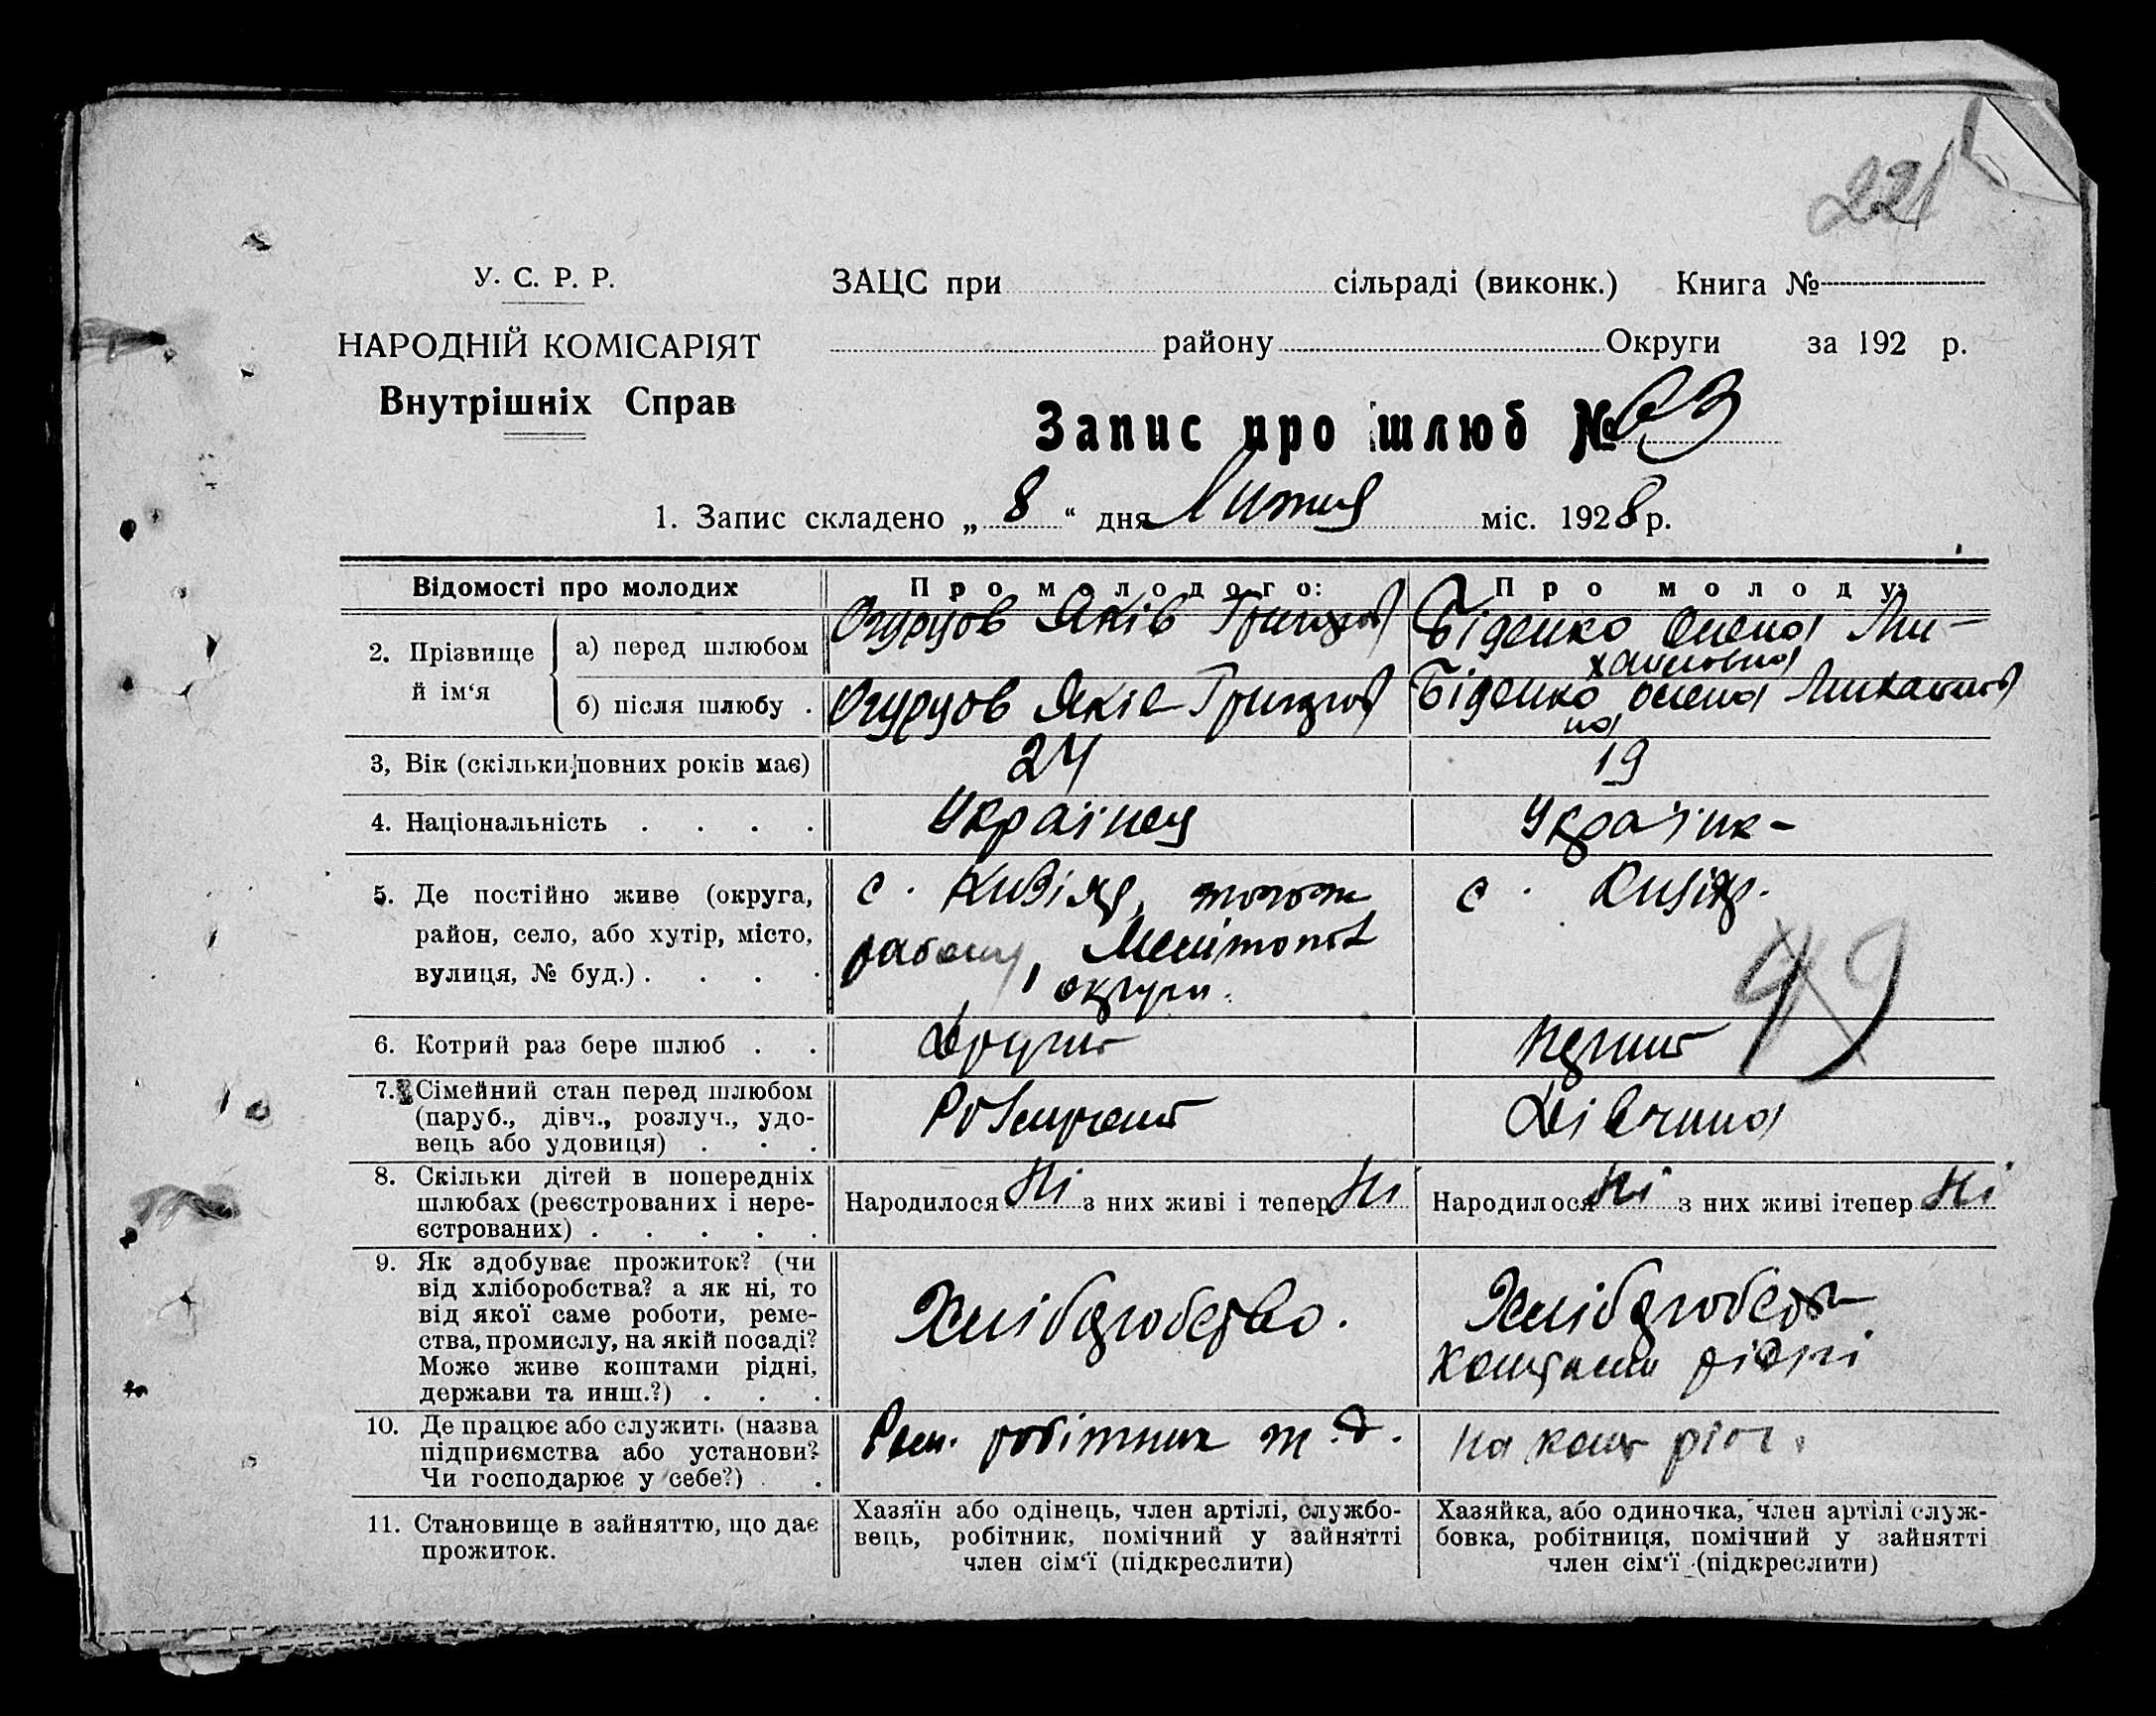 221
У. С. Р. Р.
НАРОДНІЙ КОМІСАРІЯТ
Внутрішніх Справ
ЗАЦС при сільраді (виконк.) Книга №
району Округи за 192 р.
Запис про шлюб № 63
1. Запис складено „ 8 “ дня Липня міс. 1928 р.
Відомості про молодих
Про молодого:
Про молоду:
2. Прізвище й ім‘я
а) перед шлюбом
Огурцов Яків Григоров
Біденко Олена Ми-
хайловна
б) після шлюбу .
Огурцов Яків Григоров
Біденко Олена Михайлов
на
3, Вік (скільки повних років має)
24
19
4. Національність . . . .
Українец
Українк-
5. Де постійно живе (округа,
район, село, або хутір, місто,
вулиця, № буд.) . . . .
с. Кизіяр,
Мелітопол
округи.
с. Кизіяр.
49
6. Котрий раз бере шлюб . .
Другий
Перший
7. Сімейний стан перед шлюбом
(паруб., дівч., розлуч., удо-
вець або удовиця) . . .
Дівчина
8. Скільки дітей в попередніх
шлюбах (реєстрованих і нере-
єстрованих) . . . . .
Народилося Ні з них живі і тепер Ні
Народилося Ні з них живі ітепер Ні
9. Як здобуває прожиток? (чи
від хліборобства? а як ні, то
від якої саме роботи, реме-
ства, промислу, на якій посаді?
Може живе коштами рідні,
держави та инш.?) . . .
Хліборобство.
Хліборобств
Коштами рідні
10. Де працює або служить (назва
підприємства або установи?
Чи господарює у себе?) . .
робітник
на кошт рідн.
11. Становище в зайняттю, що дає
прожиток.
Хазяїн або одінець, член артілі, службо-
вець, робітник, помічний у зайнятті
член сім‘ї (підкреслити)
Хазяйка, або одиночка, член артілі служ-
бовка, робітниця, помічний у зайнятті
член сім‘ї (підкреслити)